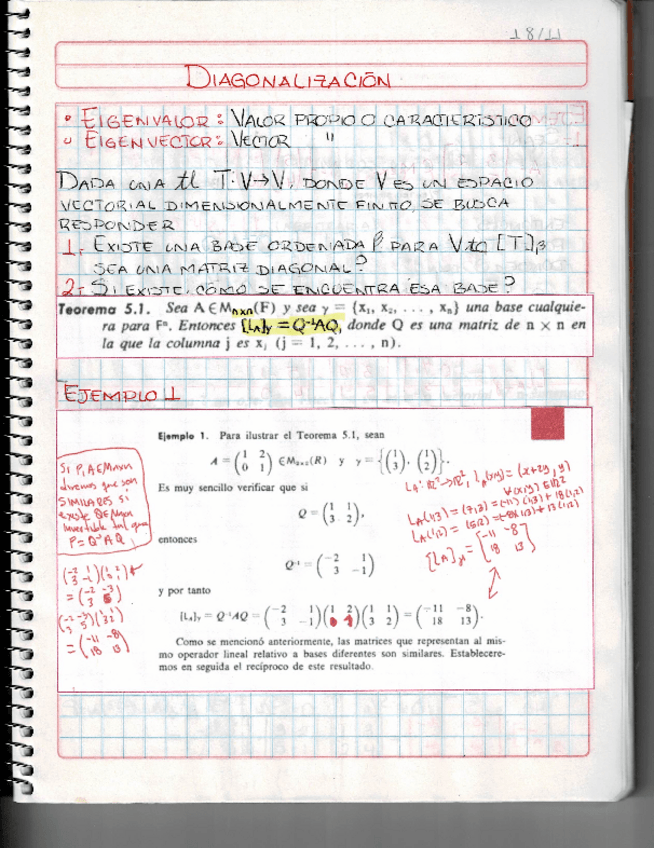 DIAGONALIZACIÓN
• EIGENVALOR: VALOR PROPIO O CARACTERÍSTICO
• EIGENVECTOR: VECTOR "
DADA UNA tl T:V→V, DONDE V ES UN ESPACIO
VECTORIAL DIMENSIONALMENTE FINITO, SE BUSCA
RESPONDER
1. EXISTE UNA BASE ORDENADA β PARA V tq [T]β
SEA UNA MATRIZ DIAGONAL?
2. SI EXISTE, CÓMO SE ENCUENTRA ESA BASE?
Teorema 5.1. Sea A ∈ Mnxn(F) y sea γ = {x₁, x₂, . . . , xₙ} una base cualquie-
ra para Fⁿ. Entonces [L_A]γ = Q⁻¹AQ, donde Q es una matriz de n × n en
la que la columna j es xⱼ (j = 1, 2, . . . , n).
EJEMPLO 1
Ejemplo 1. Para ilustrar el Teorema 5.1, sean
A = (1 2 / 0 1) ∈ M₂ₓ₂(R) y γ = {(1 / 3), (1 / 2)}.
Es muy sencillo verificar que si
Q = (1 1 / 3 2),
entonces
Q⁻¹ = (-2 1 / 3 -1)
y por tanto
[L_A]γ = Q⁻¹AQ = (-2 1 / 3 -1)(1 2 / 0 1)(1 1 / 3 2) = (-11 -8 / 18 13).
Como se mencionó anteriormente, las matrices que representan al mis-
mo operador lineal relativo a bases diferentes son similares. Establecere-
mos en seguida el recíproco de este resultado.
SI P, A ∈ Mnxn
diremos que son
SIMILARES si
existe Q ∈ Mnxn
invertible tal que
P = Q⁻¹AQ
(-2 1 / 3 -1)(1 2 / 0 1)
= (-2 -3 / 3 5)
(-2 -3 / 3 5)(1 1 / 3 2)
= (-11 -8 / 18 13)
L_A: R²→R², L_A(x,y) = (x+2y, y)
∀(x,y) ∈ R²
L_A(1,3) = (7,3) = (-11)(1,3) + 18(1,2)
L_A(1,2) = (5,2) = -8(1,3) + 13(1,2)
[L_A]γ = [-11 -8 / 18 13]